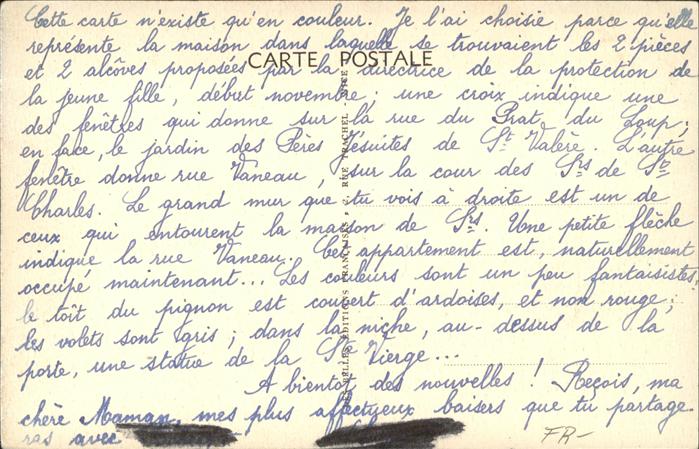 Cette carte n'existe qu'en couleur. Je l'ai choisie parce qu'elle
représente la maison dans laquelle se trouvaient les 2 pièces
CARTE POSTALE
et 2 alcôves proposées par la directrice de la protection de
la jeune fille, début novembre : une croix indique une
des fenêtres qui donne sur la rue du Prat du Loup ;
en face, le jardin des Pères Jésuites de St Valère. L'autre
fenêtre donne rue Vaneau, sur la cour des Srs de St
Charles. Le grand mur que tu vois à droite est un de
ceux qui entourent la maison de Srs. Une petite flèche
indique la rue Vaneau. Cet appartement est, naturellement
occupé maintenant... Les couleurs sont un peu fantaisistes,
le toît du pignon est couvert d'ardoises, et non rouge ;
les volets sont gris ; dans la niche, au-dessus de la
porte, une statue de la Ste Vierge...
A bientôt des nouvelles ! Reçois, ma
chère Maman, mes plus affectueux baisers que tu partage-
ras avec
FR-
LES BELLES EDITIONS FRANÇAISES - RUE TRACHEL, NICE